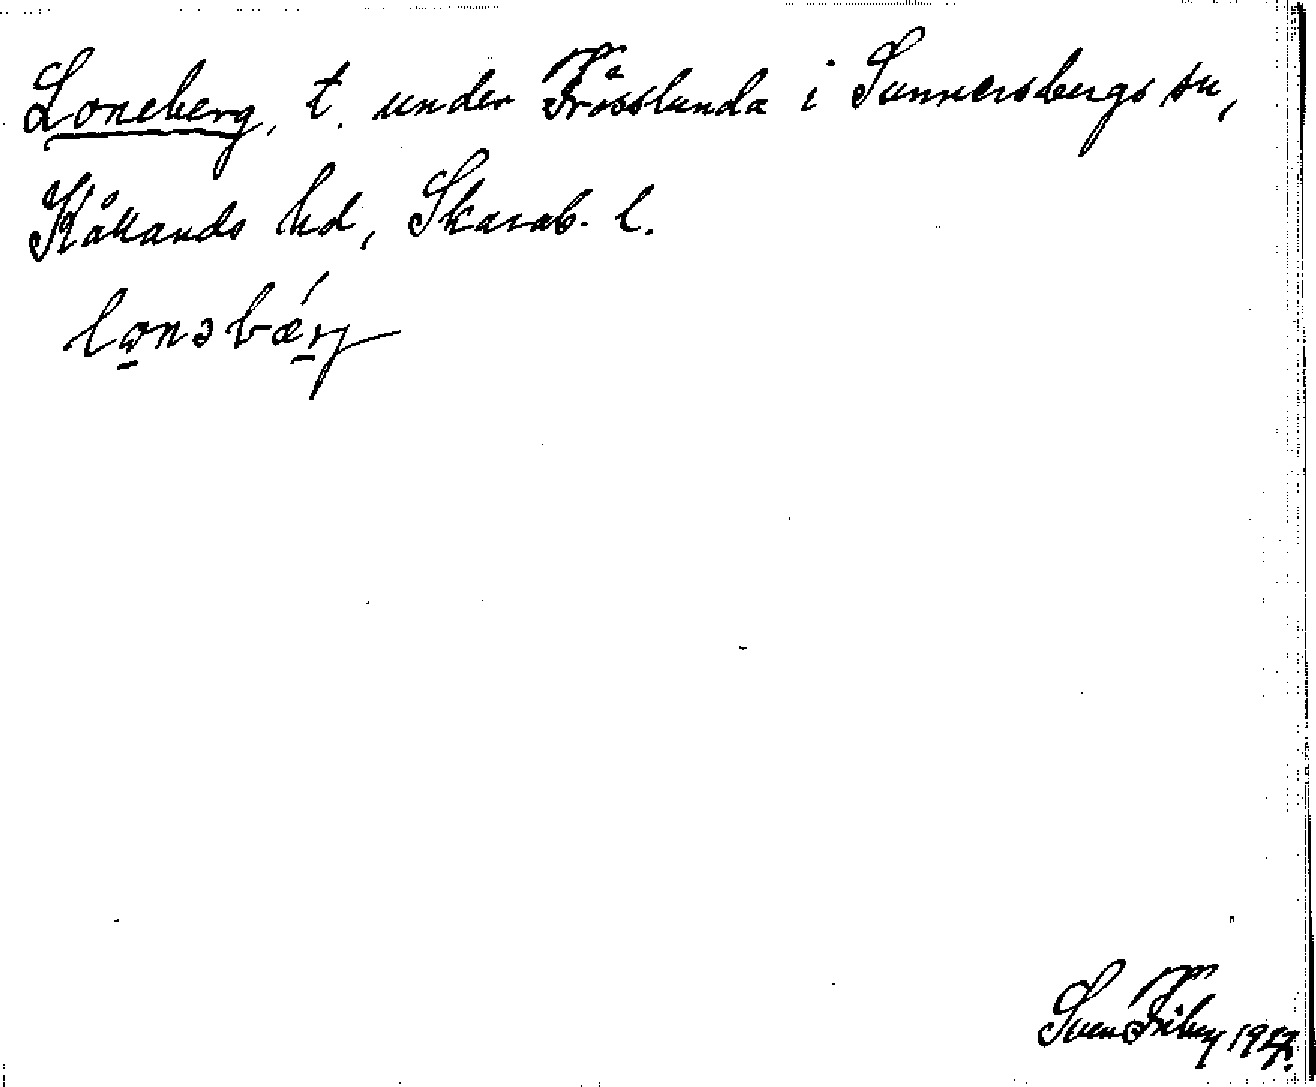 Loneberg, t. under Fråsslunda i Sunnersbergs sn,
Kållands hd, Skarab. l.
lonəbǽrg
Sven Friberg